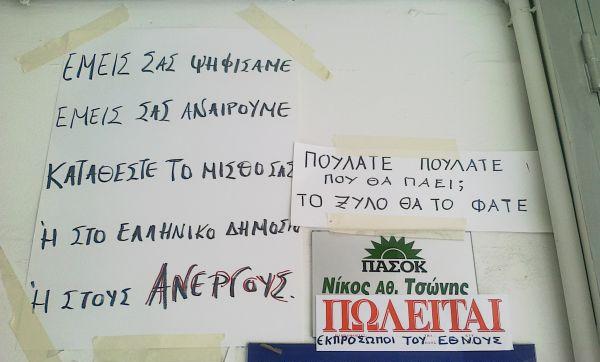 ΕΜΕΙΣ ΣΑΣ ΨΗΦΙΣΑΜΕ
ΕΜΕΙΣ ΣΑΣ ΑΝΑΙΡΟΥΜΕ
ΚΑΤΑΘΕΣΤΕ ΤΟ ΜΙΣΘΟ ΣΑΣ
Ή ΣΤΟ ΕΛΛΗΝΙΚΟ ΔΗΜΟΣΙΟ
Ή ΣΤΟΥΣ ΑΝΕΡΓΟΥΣ.
ΠΟΥΛΑΤΕ ΠΟΥΛΑΤΕ
ΠΟΥ ΘΑ ΠΑΕΙ;
ΤΟ ΞΥΛΟ ΘΑ ΤΟ ΦΑΤΕ
ΠΑΣΟΚ
Νίκος Αθ. Τσώνης
ΠΩΛΕΙΤΑΙ
ΕΚΠΡΟΣΩΠΟΙ ΤΟΥ ... ΕΘΝΟΥΣ